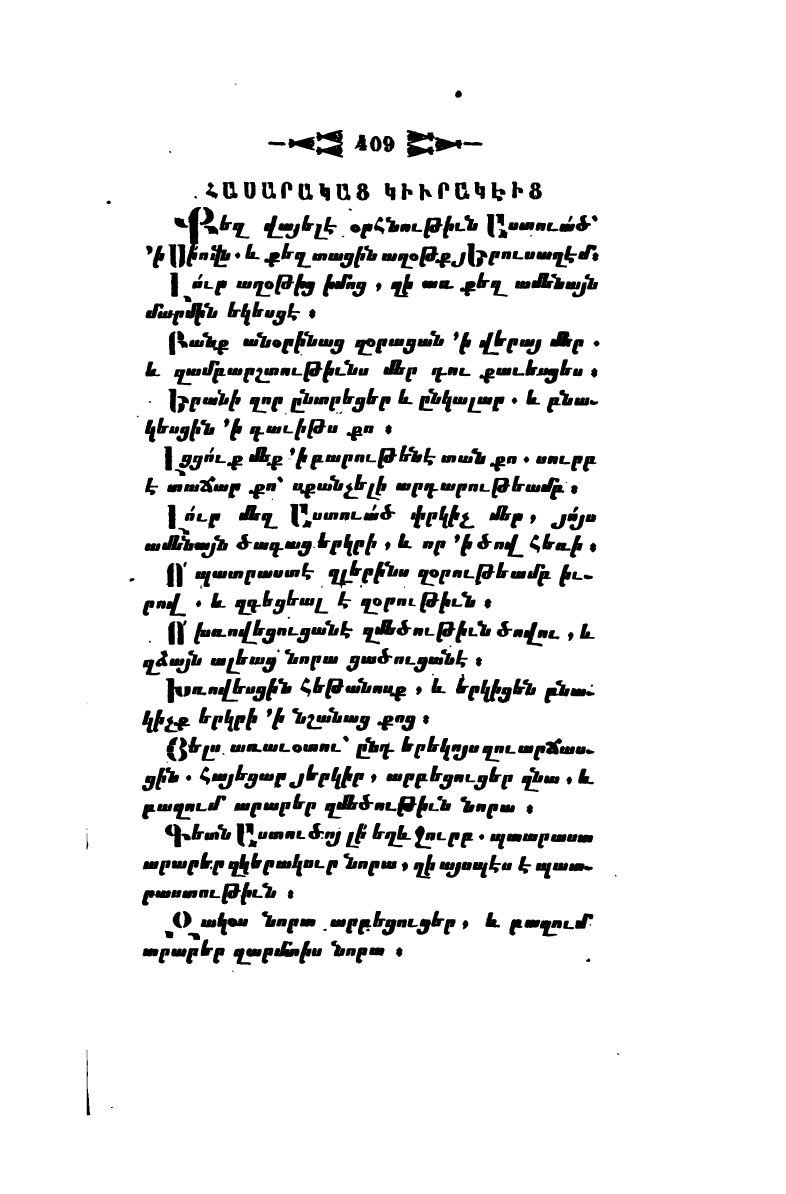 409
ՀԱՍԱՐԱԿԱՑ ԿԻՒՐԱԿԷԻՑ
Քեզ վայելէ օրհնութիւն Աստուած՝
՚ի Սիովն. և քեզ տացին աղօթք յԵրուսաղէմ։
Լո՛ւր աղօթից իմոց, զի առ քեզ ամենայն
մարմին եկեսցէ։
Բանք անօրինաց զօրացան ՚ի վերայ մեր.
և զամբարշտութիւնս մեր դու քաւեսցես։
Երանի զոր ընտրեցեր և ընկալար. և բնա-
կեսցին ՚ի գաւիթս քո։
Լցցո՛ւք մեք ՚ի բարութենէ տան քո. սուրբ
է տաճար քո՝ սքանչելի արդարութեամբ։
Լո՛ւր մեզ Աստուած փրկիչ մեր, յո՛յս
ամենայն ծագաց երկրի, և որ ՚ի ծով հեռի։
Ո՛ պատրաստէ զլերինս զօրութեամբ իւ-
րով. և զգեցեալ է զօրութիւն։
Ո՛ խռովեցուցանէ զմեծութիւն ծովու, և
զձայն ալեաց նորա ցածուցանէ։
Խռովեսցին հեթանոսք, և երկիցեն բնա-
կիչք երկրի ՚ի նշանաց քոց։
Ցելս առաւօտու՝ ընդ երեկոյս զուարճաս-
ցին. հայեցար յերկիր, արբեցուցեր զնա, և
բազում արարեր զմեծութիւն նորա։
Գետն Աստուծոյ լի եղև ջուրբ. պատրաստ
արարեր զկերակուր նորա, զի այսպէս է պատ-
րաստութիւն։
Զակօս նորա արբեցուցեր, և բազում
արարեր զարմտիս նորա։